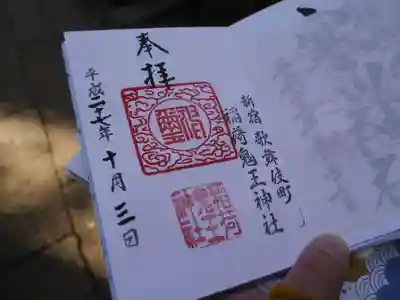 新宿歌舞伎町
稲荷鬼王神社
奉拝
平成二七年十月三日
稲荷
鬼王
神社